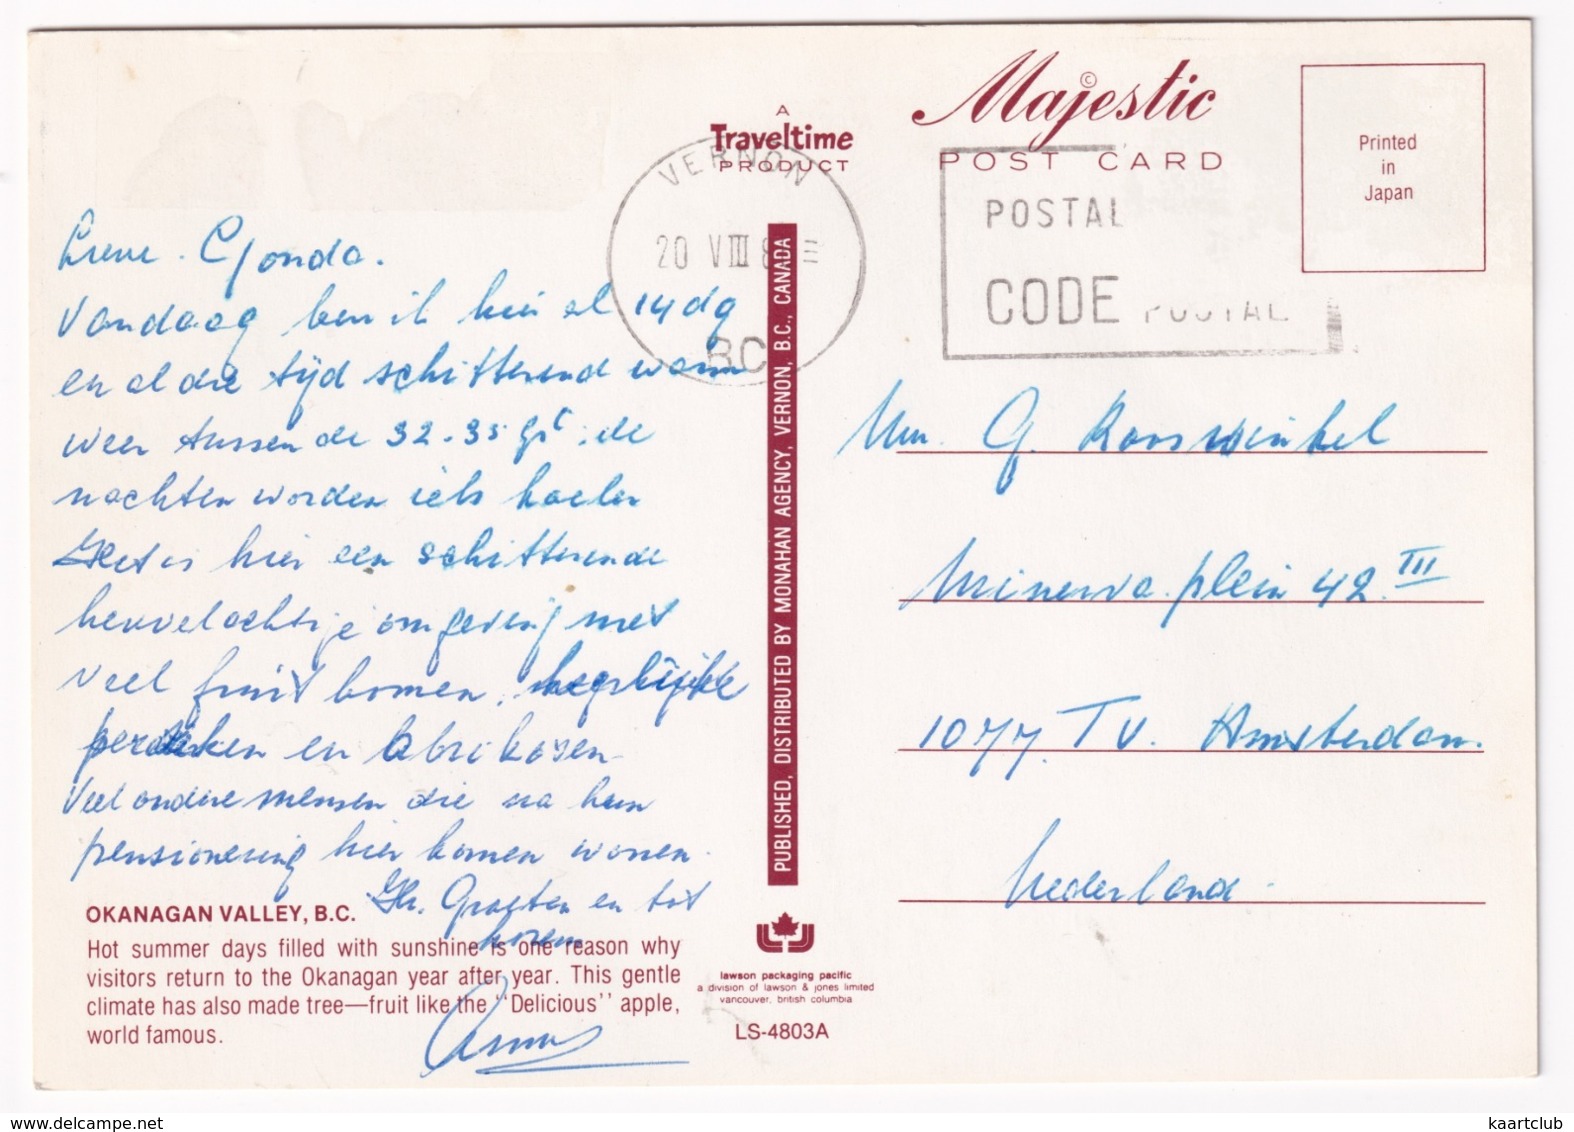 A
Traveltime
PRODUCT
Majestic ©
POST CARD
Printed
in
Japan
VERNON
20 VIII 8
BC
POSTAL
CODE POSTAL
Lieve Gonda.
Vandaag ben ik hier al 14 dg
en al die tijd schitterend warm
weer tussen de 32-35 gr, de
nachten worden iets koeler
Het is hier een schitterende
heuvelachtige omgeving met
veel fruit bomen,
perziken en abrikozen
Veel andere mensen die na hun
pensionering hier komen wonen.
Gr. Groeten en tot
horen
Mw. G. Kooswinkel
Minervaplein 42 III
1077 TV. Amsterdam.
Nederland.
PUBLISHED, DISTRIBUTED BY MONAHAN AGENCY, VERNON, B.C., CANADA
OKANAGAN VALLEY, B.C.
Hot summer days filled with sunshine is one reason why
visitors return to the Okanagan year after year. This gentle
climate has also made tree—fruit like the "Delicious" apple,
world famous.
lawson packaging pacific
a division of lawson & jones limited
vancouver, british columbia
LS-4803A
www.delcampe.net
kaartclub